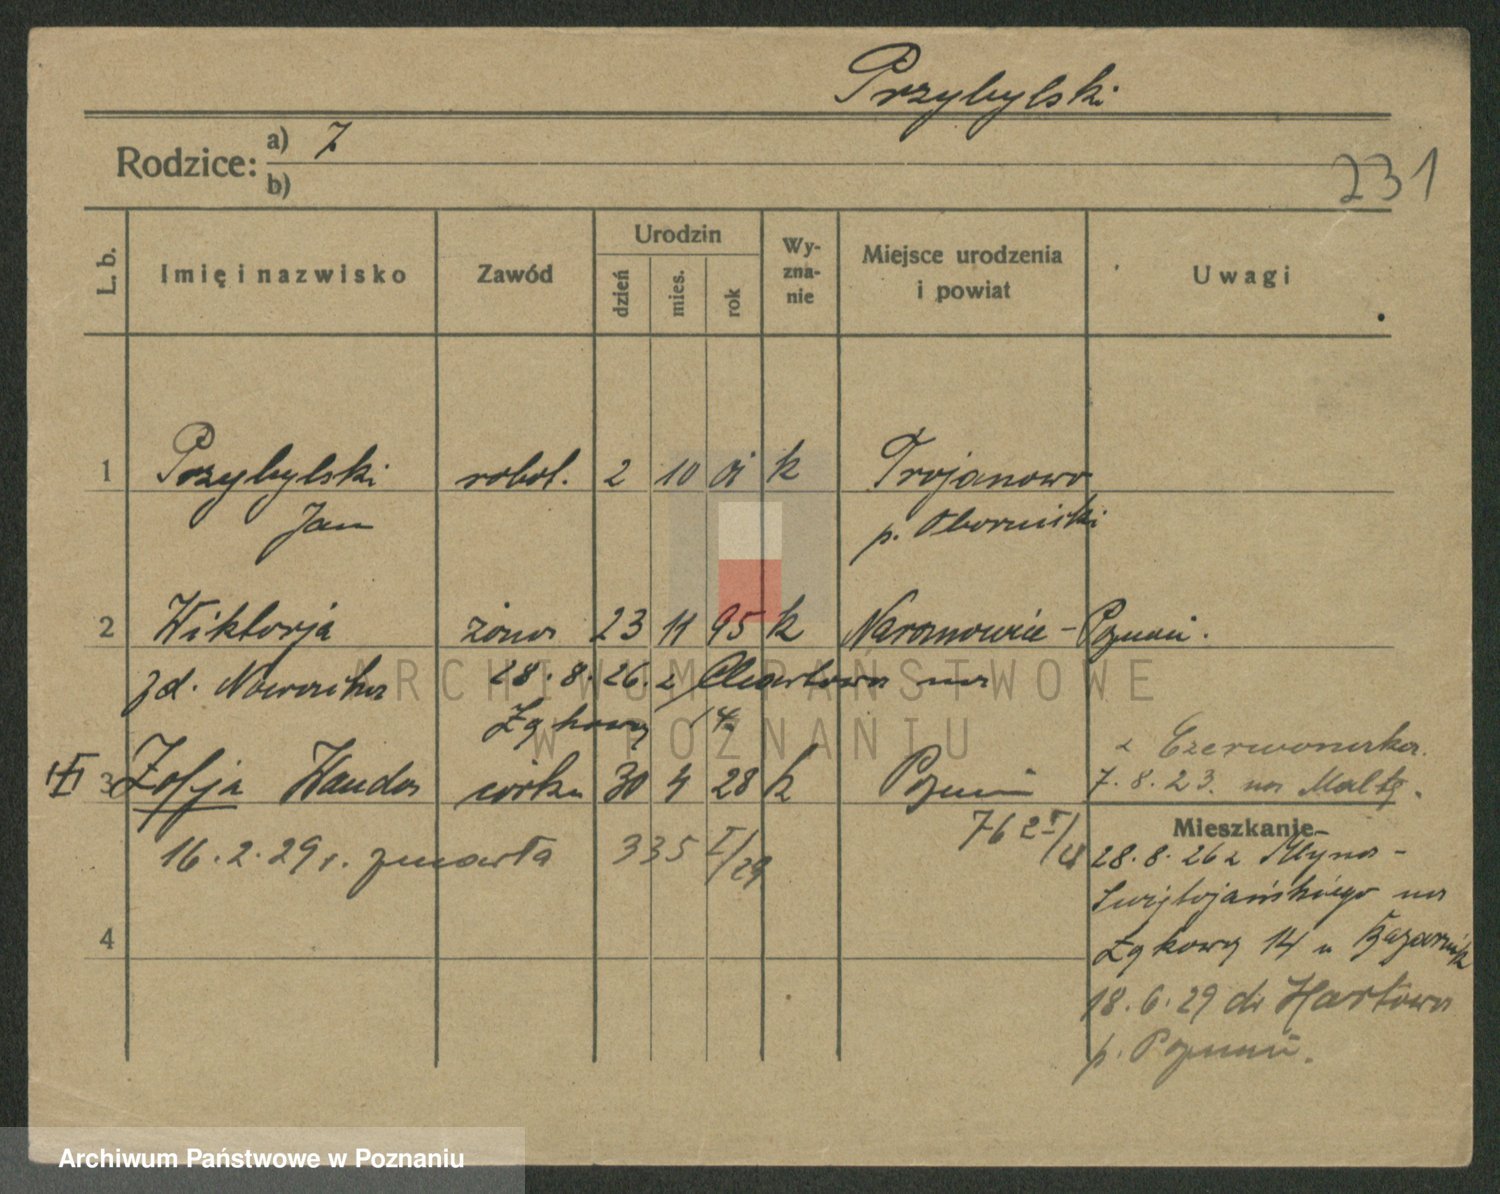 Przybylski
Rodzice: a) 7
b)
231
L. b. Imię i nazwisko Zawód Urodzin dzień mies. rok Wy-zna-nie Miejsce urodzenia i powiat Uwagi
1 Przybylski robot. 2 10 01 k Trojanowo
Jan p. Obornicki
2 Wiktorja żona 23 11 95 k Naramowice - Poznań.
zd. Nowacka 28. 8. 26. z Chartowa na
Łąkową 14
z Czerwonaka
3 Zofja Wanda córka 30 4 28 k Poznań 7. 8. 23. na Maltę.
762 I/
Mieszkanie
16. 2. 29 r. zmarła 335 I/29 28. 8. 26 z Młyna-
Świętojańskiego na
4 Łąkową 14 u
18. 6. 29 do Hartowa
p. Poznań.
ARCHIWUM PAŃSTWOWE
W POZNANIU
Archiwum Państwowe w Poznaniu